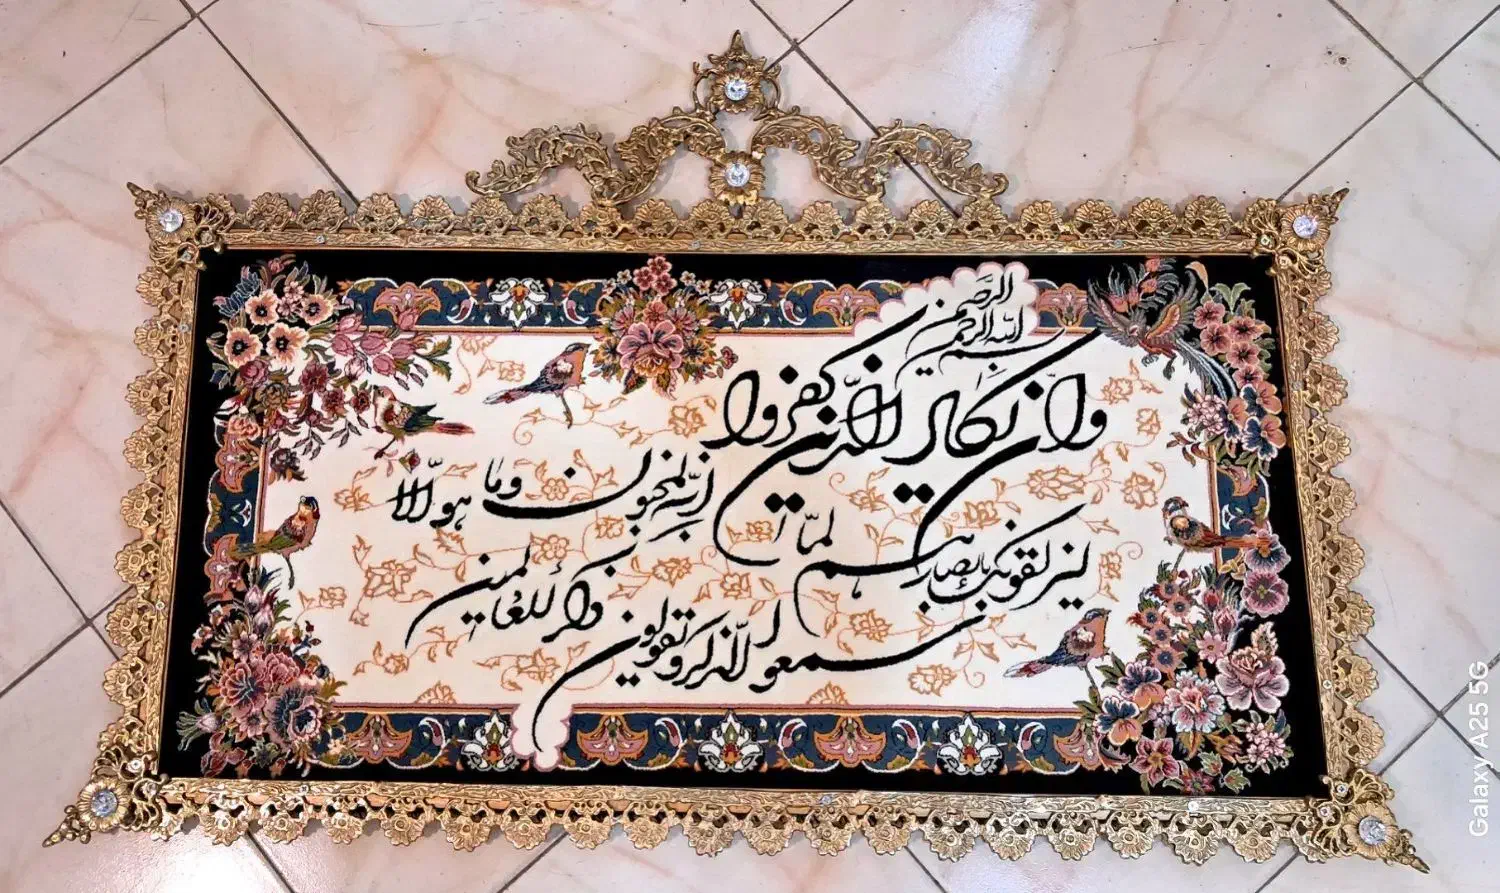 بسم الله الرحمن الرحیم
وان یکاد الذین کفروا
لیزلقونک بابصارهم لما سمعوا الذکر و یقولون
انه لمجنون وما هو الا
ذکر للعالمین
Galaxy A25 5G